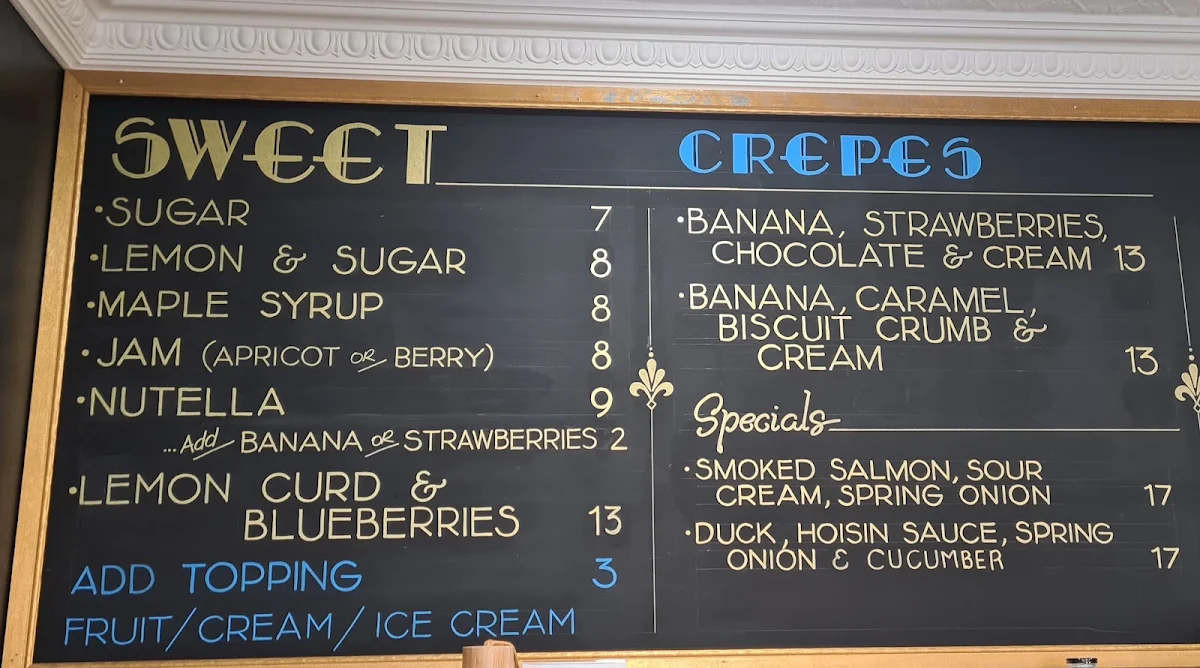 SWEET CREPES
•SUGAR 7
•LEMON & SUGAR 8
•MAPLE SYRUP 8
•JAM (APRICOT or BERRY) 8
•NUTELLA 9
...Add BANANA or STRAWBERRIES 2
•LEMON CURD &
BLUEBERRIES 13
ADD TOPPING 3
FRUIT/CREAM/ICE CREAM
•BANANA, STRAWBERRIES,
CHOCOLATE & CREAM 13
•BANANA, CARAMEL,
BISCUIT CRUMB &
CREAM 13
Specials
•SMOKED SALMON, SOUR
CREAM, SPRING ONION 17
•DUCK, HOISIN SAUCE, SPRING
ONION & CUCUMBER 17